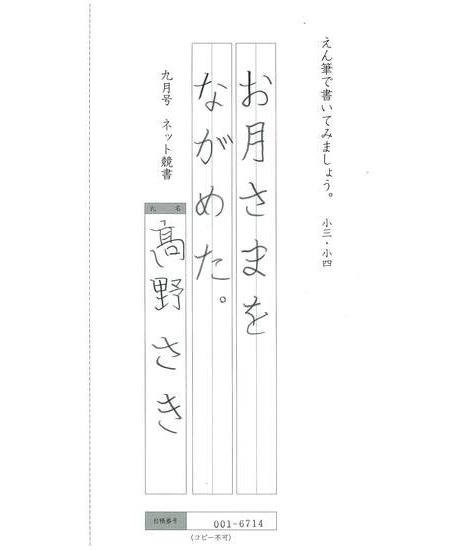 えん筆で書いてみましょう。 小三・小四
お月さまを
ながめた。
九月号 ネット競書
氏 名
髙野さき
台帳番号
001-6714
(コピー不可)